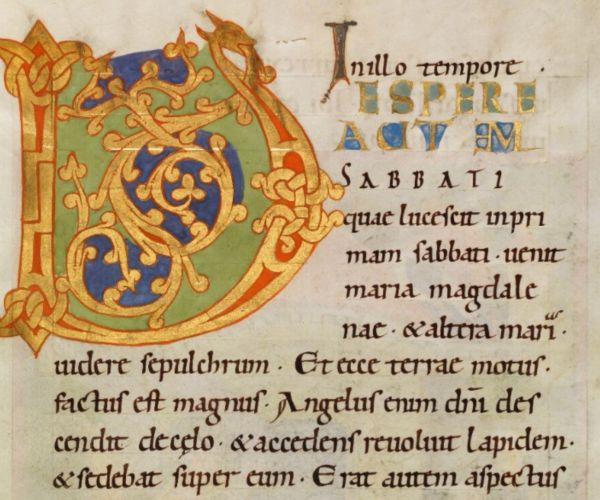 Inillo tempore ·
VESPERE
AUTEM
SABBATI
quae lucescit inpri
mam sabbati · uenit
maria magdale
nae · &altera mariᵃ ·
uidere sepulchrum · Et ecce terrae motus ·
factus est magnus · Angelus enim dñi des
cendit decęlo · &accedens reuoluit lapidem ·
&sedebat super eum · Erat autem aspectus